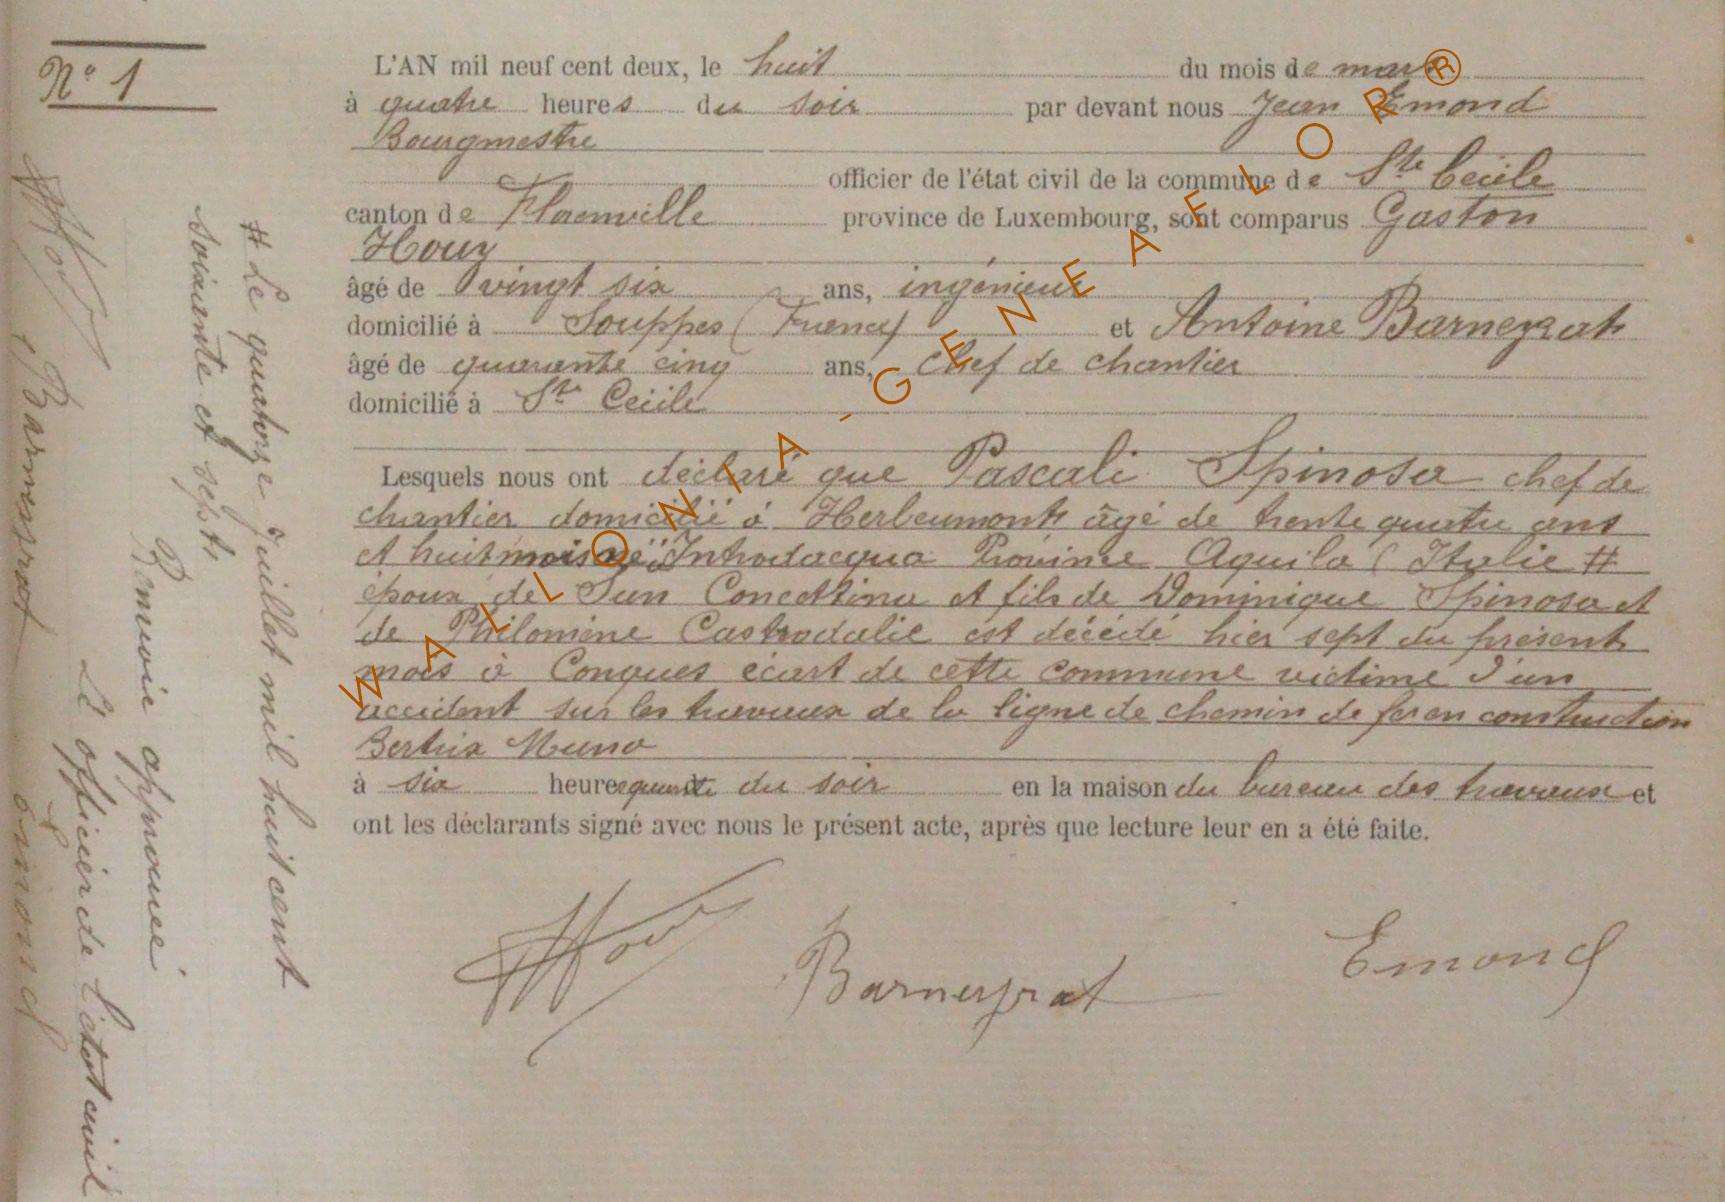 N° 1
L'AN mil neuf cent deux, le huit du mois de mars
à quatre heures du soir par devant nous Jean Emond
Bourgmestre
officier de l'état civil de la commune de Ste Cécile
canton de Florenville province de Luxembourg, sont comparus Gaston
Houy
âgé de vingt six ans, ingénieur
domicilié à Souppes (France) et Antoine Barneyrat
âgé de quarante cinq ans, chef de chantier
domicilié à Ste Cécile
Lesquels nous ont déclaré que Pascali Spinosa chef de
chantier domicilié à Herbeumont âgé de trente quatre ans
et huit mois né à Introdacqua Province Aquila (Italie #
époux de Sun Concettina et fils de Dominique Spinosa et
de Philomène Castrodalie est décédé hier sept du présent
mois à Conques écart de cette commune victime d'un
accident sur les travaux de la ligne de chemin de fer en construction
Bertrix Muno
à six heures du soir en la maison du bureau des travaux et
ont les déclarants signé avec nous le présent acte, après que lecture leur en a été faite.
Houy Barneyrat Emond
# Le quatorze juillet mil huit cent
soixante et sept.
Renvoie approuvé
L'officier de l'état civil
Houy Barneyrat Emond
WALLONIA-GENEAFLOR®